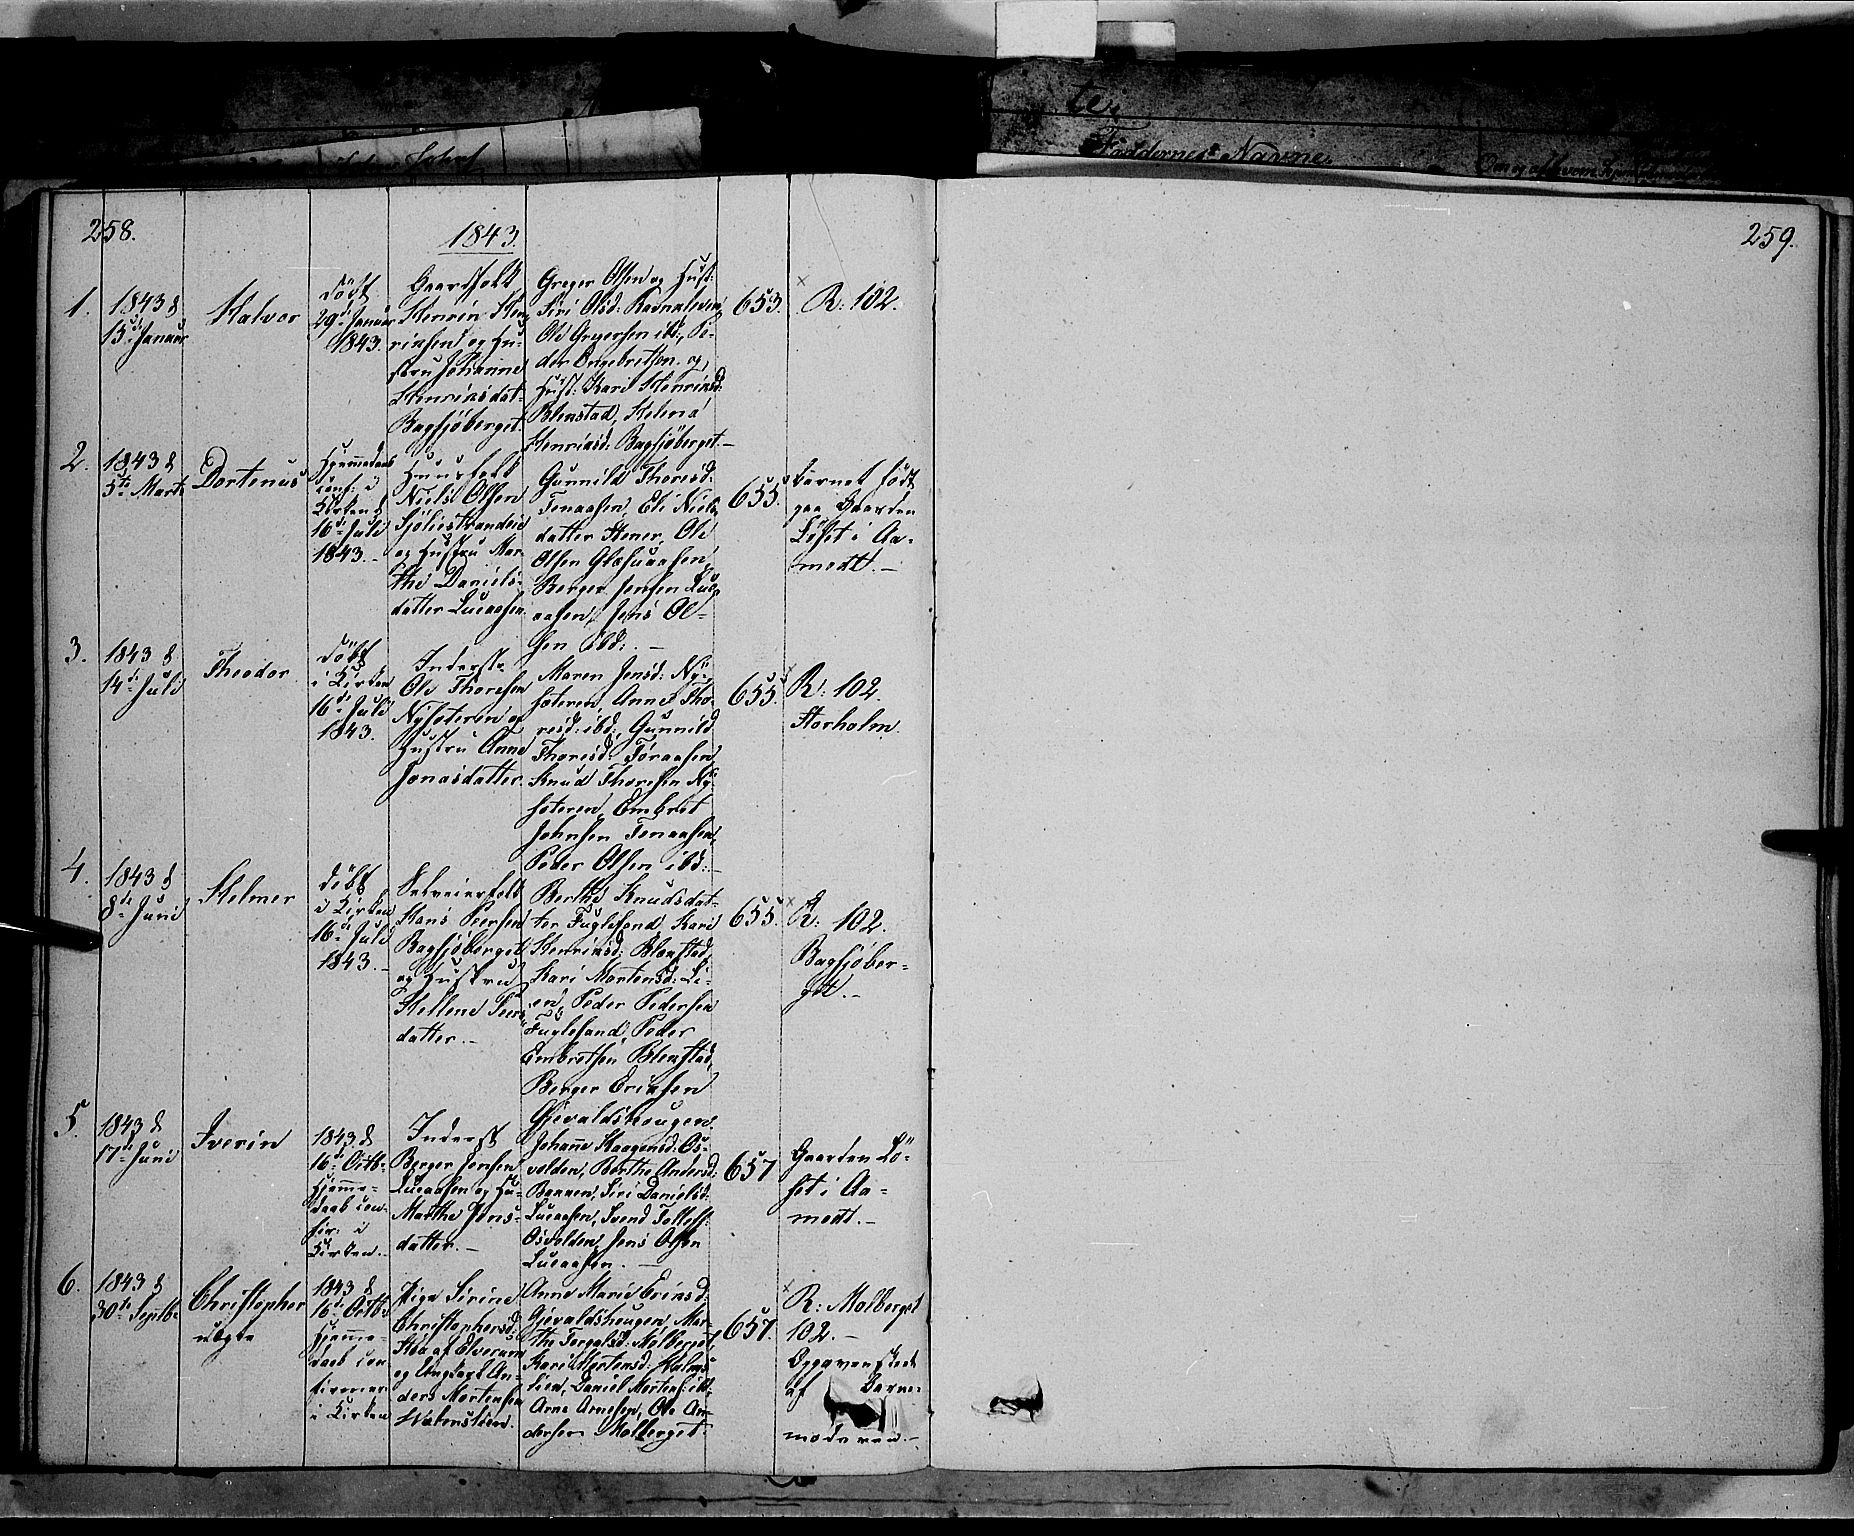 te.
Faddernes Navne.
258.
1843.
259.
1.
1843 d
13de Januar
Halvor
Döbt
29de Januar
1843.
Gaardfolk
Henrik Hen-
riksen og Hu-
stru Johanne
Henriksdat-
Bagsjöberget.
Greger Olsen og Hust:
Siri Olsd:
Ole Gregersen ibd:, Pe-
der Engebretsen og
Hust: Kari Henriksd:
Blenstad, Helena
Henriksd: Bagsjöberget.-
653.
R: 102.
2.
1843 d
5te Marts
Dortenus
Hjemmedøbt
conf: i
Kirken d
16de Juli
1843.-
Huusfolk
Niels Olsen
Sjölistranden
og Hustru Mar-
the Daniels-
datter Lucaasen
Gunnild Thoresd:
Tenaasen, Eli Niels-
datter Stener, Ole
Olsen
Berger Jensen Luc-
aasen, Jens Ol-
sen ibd:.-
655.
barnet födt
paa Gaarden
Löset i Aa-
modt.-
3.
1843 d
14de Juli
Theodor.
Döbt
i Kirken
16de Juli
1843.
Inderst
Ole Thoresen
Nyseteren og
Hustru Anne
Jonasdatter.
Maren Jensd: Ny-
seteren, Anne Tho-
resd: ibd:, Gunnild
Thoresd: Tøraasen,
Knud Thoresen Ny-
seteren, Embret
Johnsen Tenaasen,
Peder Olsen ibd:-
655.
R: 102.
Storholm.
4.
1843 d
8de Juni
Helmer
döbt
i Kirken
16de Juli
1843.-
Selveierfolk
Hans Peersen
Bagsjöberget
og Hustru
Hellene Peers-
datter.-
Berthe Knudsdat-
ter Fuglesand, Kari
Henriksd: Blenstad,
Kari Mortensd: Li-
en, Peder Pedersen
Fuglesand, Peder
Embretsen Blenstad,
Berger Eriksen
Gjevaldshougen.
655.
R: 102.
Bagsjöber-
get.-
5.
1843 d
17de Juni
Iverin
1843 d
16de Octb.
Hjemme-
daab con-
fir: i
Kirken.-
Inderst
Berger Jensen
Lucaasen og Hu:
Marthe Jens-
datter.-
Johanne Haagensd: Os-
volden, Berthe Andersd:
Bakken, Siri Danielsd:
Lucaasen, Svend Tollefs:
Osvolden, Jens Olsen
Lucaasen.-
657
Gaarden Lö-
set i Aa-
modt.-
6.
1843 d
30te Septb.
Christopher
uægte
1843 d
16de Octb.
Hjemme-
daab con-
firmer:
i Kirken
Pige Sirine
Christophersd:
af Elverum
og Ungkarl An-
ders Mortensen
Anne Marie Eriksd:
Gjevaldshougen, Mar-
the Torgalsd: Molberget,
Kari Mortensd: Holms-
lien, Daniel Mortens: ibd,
Arne Arnesen, Ole An-
dersen Molberget.
657.
R: Molberget
102.-
Opgaven skede
af Barne-
moderen.-